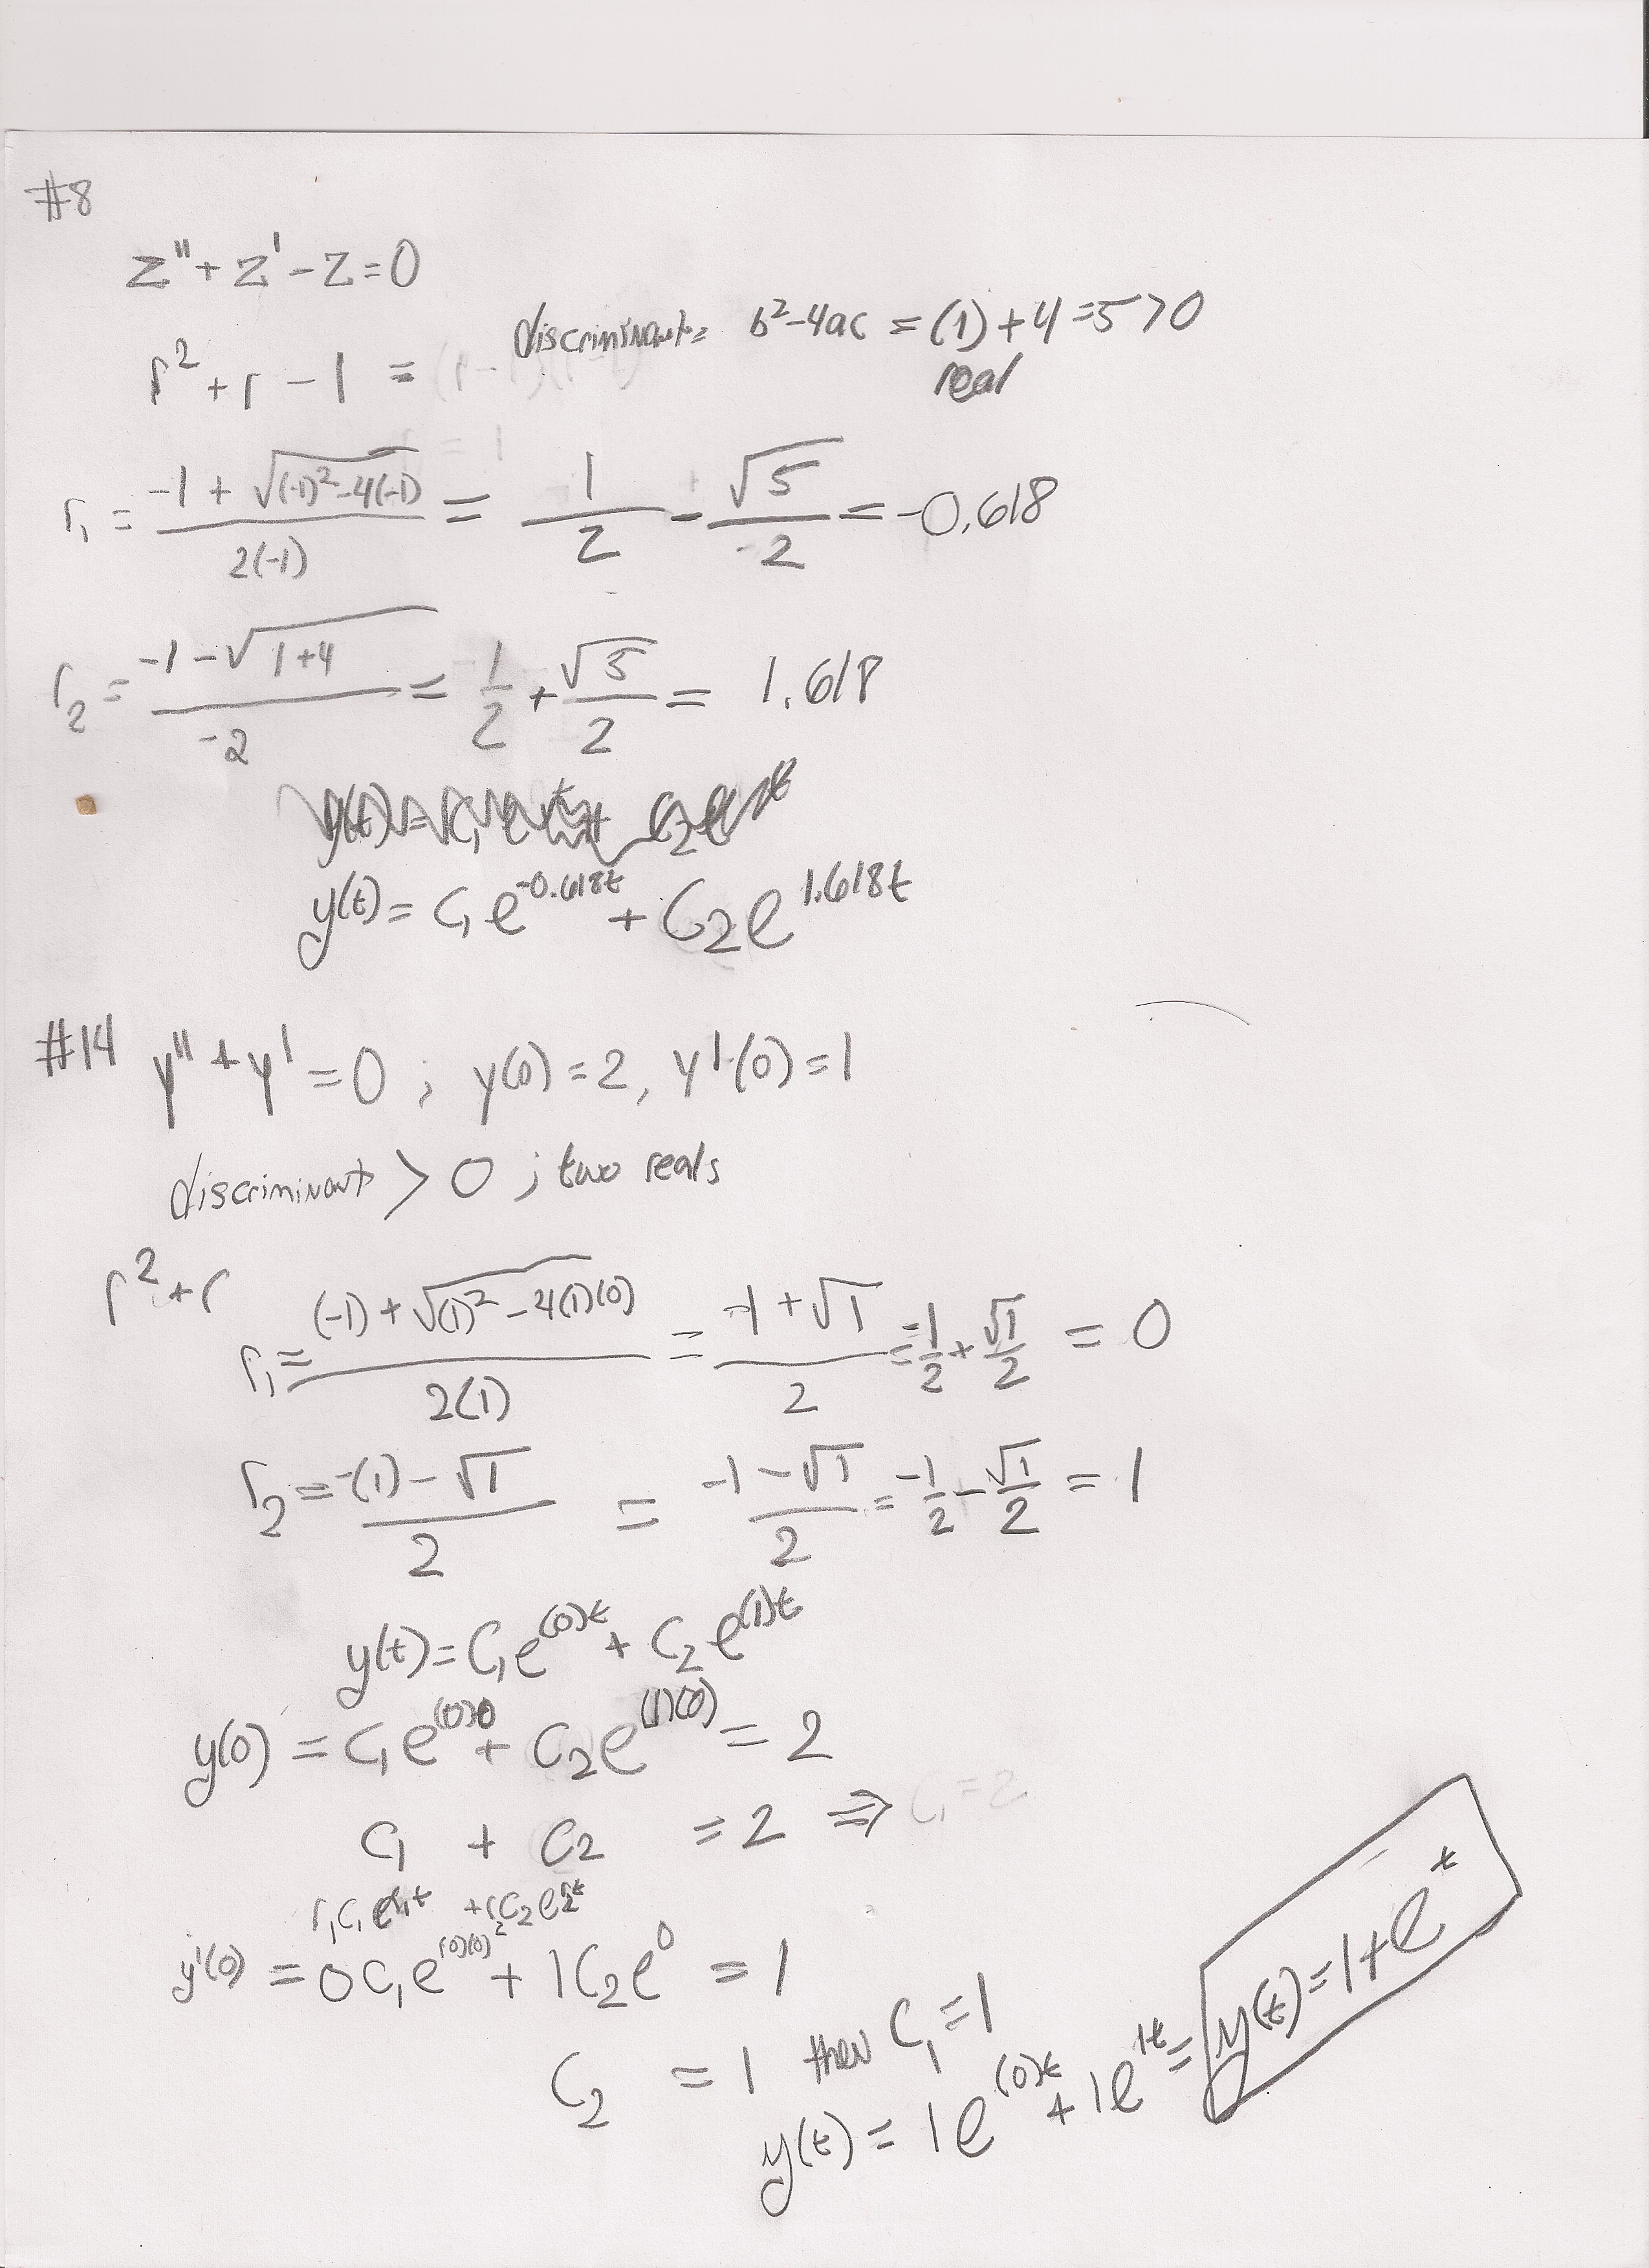 #8
z'' + z' - z = 0
discriminant = b² - 4ac = (1) + 4 = 5 > 0
r² + r - 1 =
real
r₁ = (-1 + √((-1)² - 4(-1))) / 2(-1) = 1/2 - √5/-2 = -0.618
r₂ = (-1 - √(1+4)) / -2 = 1/2 + √5/2 = 1.618
y(t) = C₁e^(-0.618t) + C₂e^(1.618t)
#14 y'' + y' = 0 ; y(0) = 2, y'(0) = 1
discriminant > 0 ; two reals
r² + r
r₁ = ((-1) + √((1)² - 4(1)(0))) / 2(1) = (-1 + √1) / 2 = -1/2 + √1/2 = 0
r₂ = (-(1) - √1) / 2 = (-1 - √1) / 2 = -1/2 - √1/2 = 1
y(t) = C₁e^((0)t) + C₂e^((1)t)
y(0) = C₁e^((0)0) + C₂e^((1)(0)) = 2
C₁ + C₂ = 2 ⇒ C₁ = 2
r₁C₁e^(r₁t) + r₂C₂e^(r₂t)
y'(0) = 0C₁e^((0)(0)) + 1C₂e^0 = 1
C₂ = 1 then C₁ = 1
y(t) = 1e^((0)t) + 1e^(1t) = y(t) = 1 + e^t